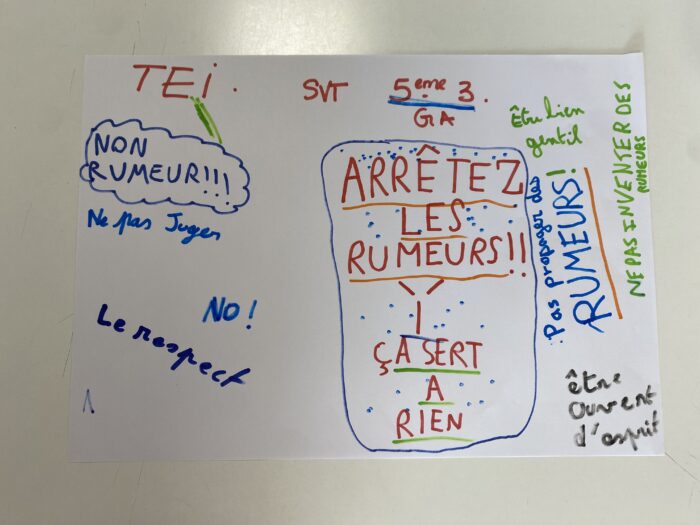 TEi.
SVT
5eme 3.
GA
NON
RUMEUR!!!
Ne pas Juger
NO!
Le respect
ARRÊTEZ
LES
RUMEURS!!
ÇA SERT
A
RIEN
Être bien
gentil
Pas propager des
RUMEURS!
NE PAS INVENTER DES
RUMEURS
être
Ouvert
d'esprit